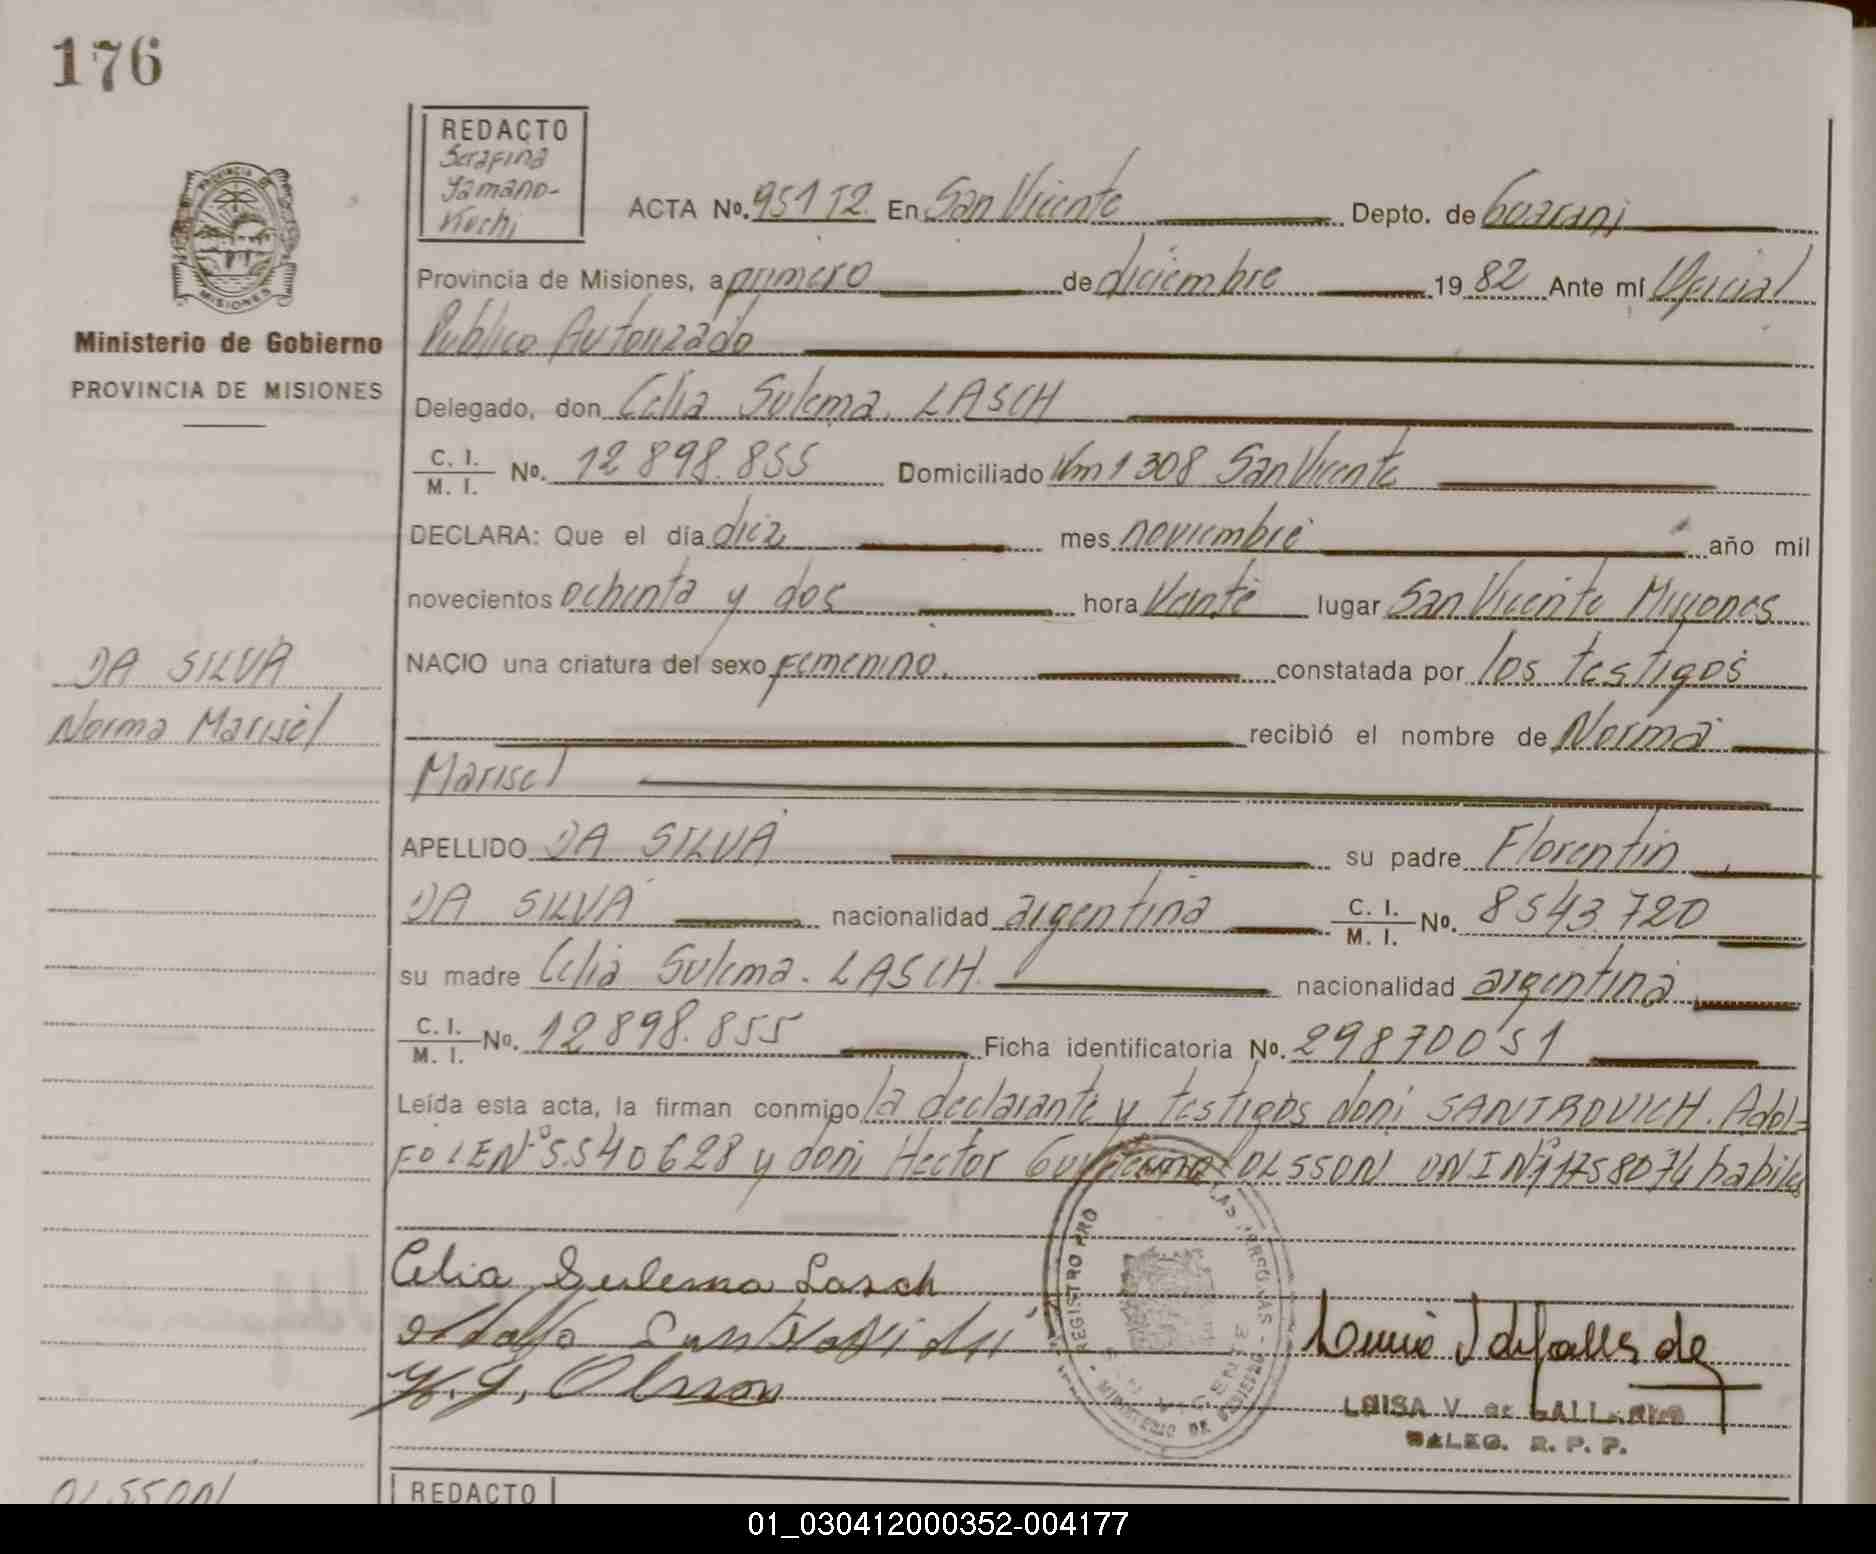 176
REDACTO
Serafina
Yamano-
Kuchi
ACTA No. 951 T2. En San Vicente Depto. de Guarani
Provincia de Misiones, a primero de diciembre 1982 Ante mí Oficial
Publico Autorizado
PROVINCIA DE
MISIONES
Ministerio de Gobierno
PROVINCIA DE MISIONES
Delegado, don Celia Sulema. LASCH
C. I.
M. I. No. 12 898.855 Domiciliado Km 1308 San Vicente
DECLARA: Que el día diez mes noviembre año mil
novecientos ochenta y dos hora Veinte lugar San Vicente Misiones
DA SILVA
Norma Marisel
NACIO una criatura del sexo femenino. constatada por los testigos
recibió el nombre de Norma
Marisel
APELLIDO DA SILVA su padre Florentin
DA SILVA nacionalidad argentina C. I.
M. I. No. 8543.720
su madre Celia Sulema. LASCH. nacionalidad argentina
C. I.
M. I. No. 12898.855 Ficha identificatoria No. 29870051
Leída esta acta, la firman conmigo la declarante y testigos don: SANTROVICH. Adol=
FO LEN° 5.540628 y don: Hector Guillermo OLSSON DNI N° 11758074 habiles
Celia Sulema Lasch
H. G. Olsson
REGISTRO PRO
MINISTERIO DE
LUISA V. de GALLARDO
DALEG. R. P. P.
OLSSON
REDACTO
01_030412000352-004177